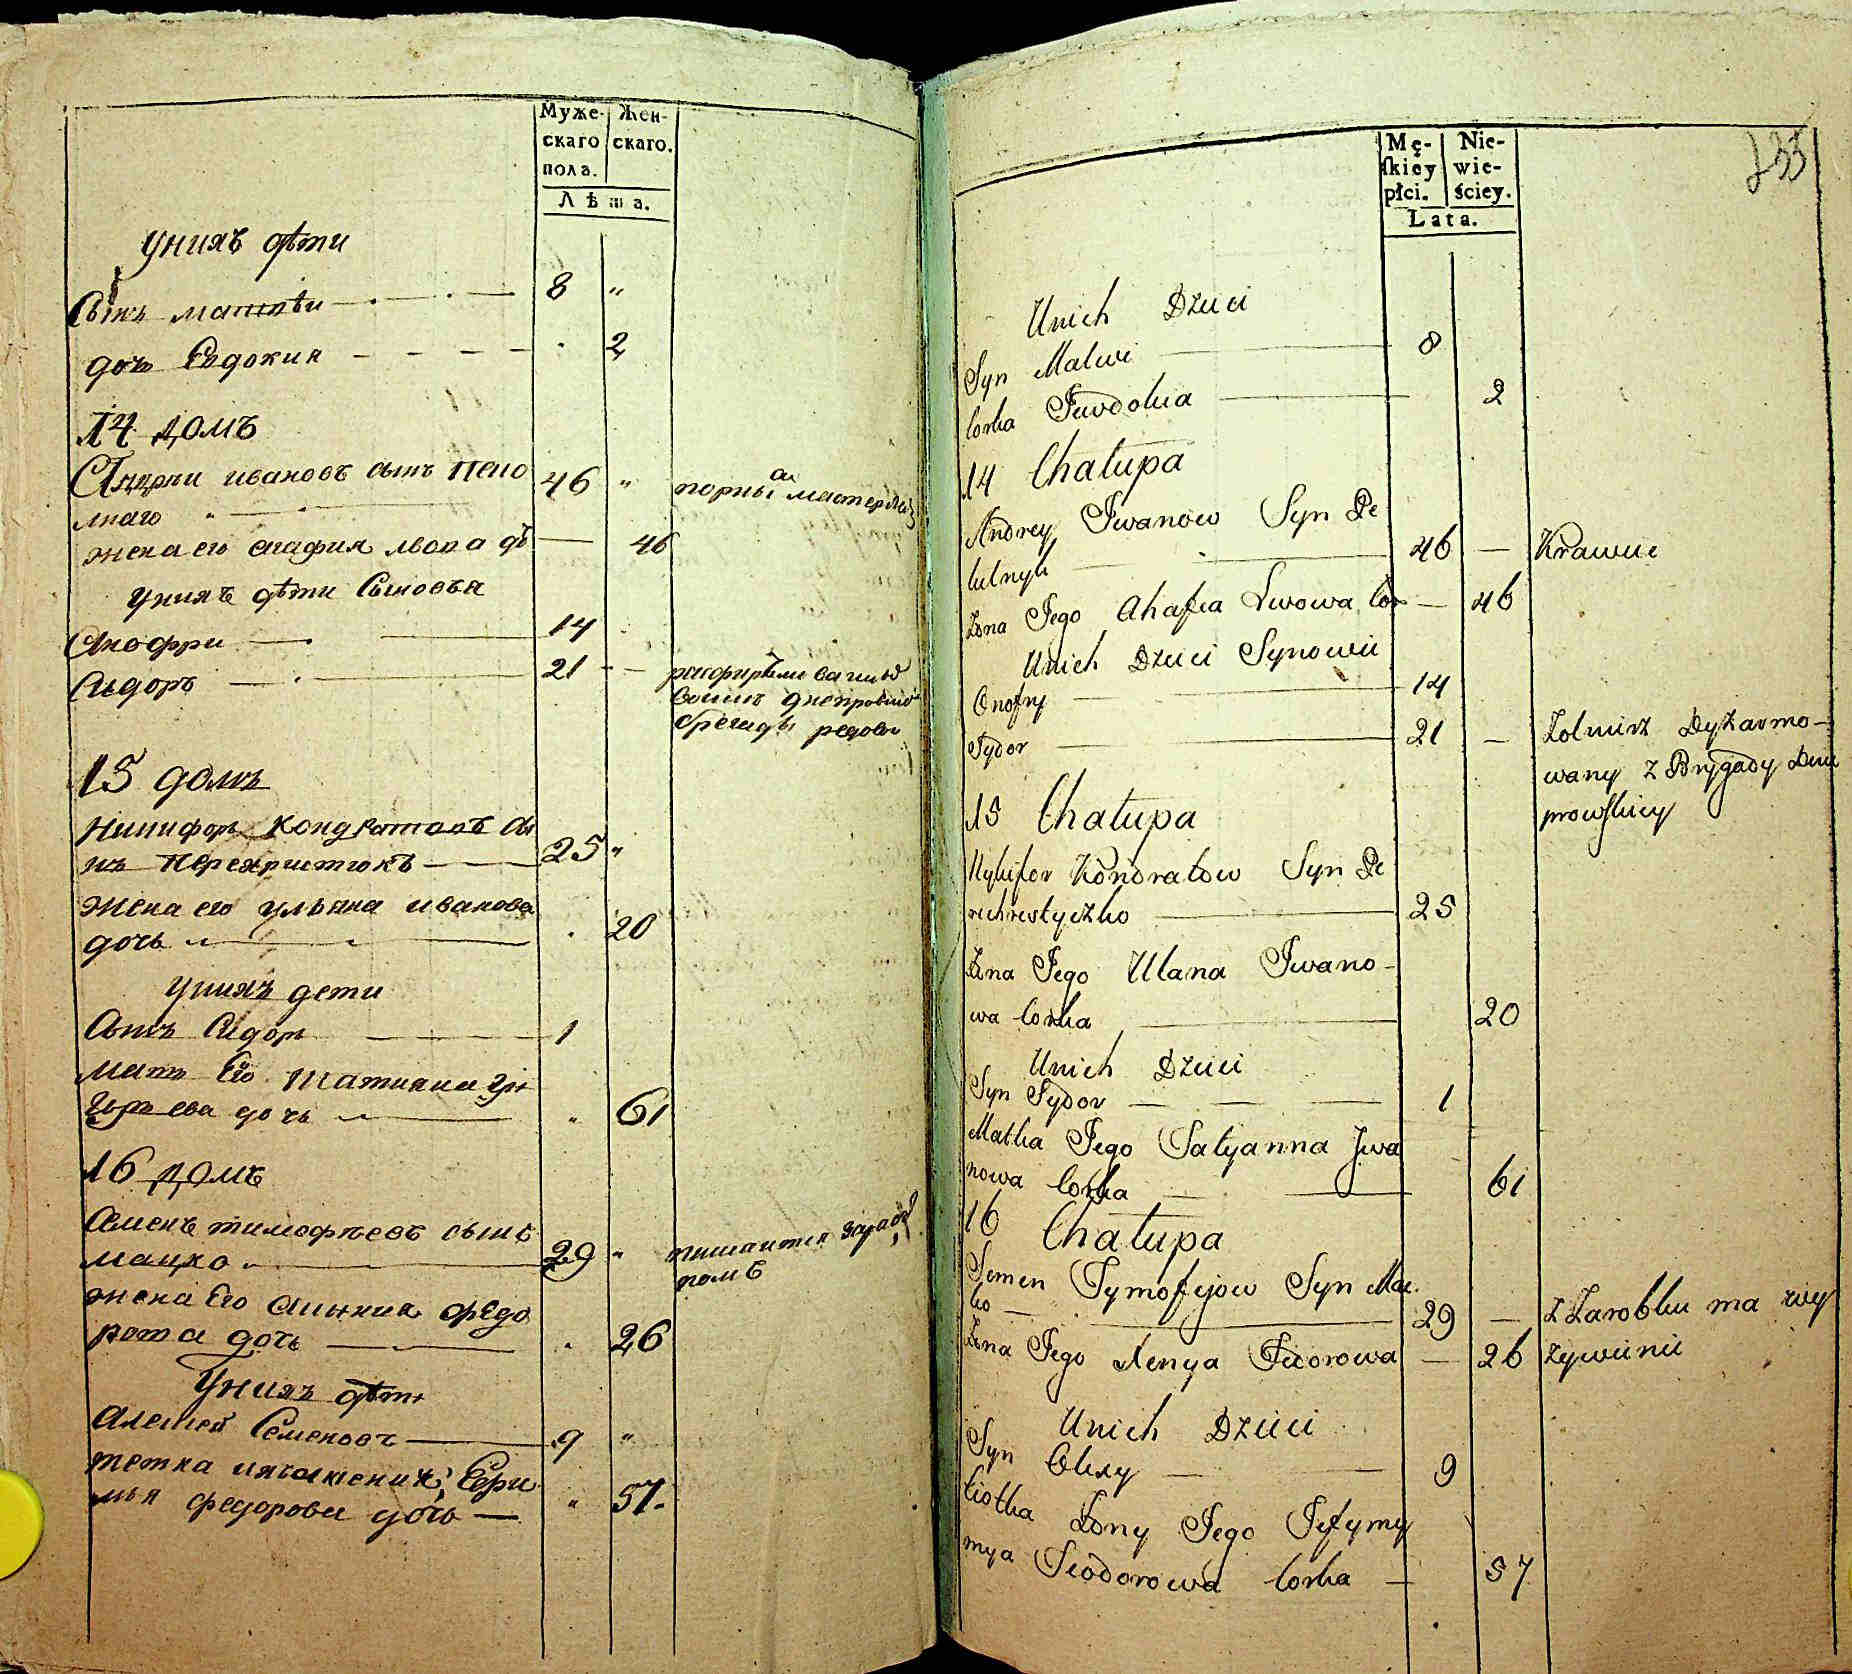 Муже- Жен-
скаго скаго.
пола.
Лѣта.
унихъ дѣти
Сынъ матвѣи 8 "
дочь Евдокия 2
14 домъ
Андреи ивановъ сынъ пело
лнаго 46 " портны мастер
жена его агафия лвова до 46
унихъ дѣти Сыновья
Анофри 14
Сидоръ 21
бригады
15 домъ
Никифоръ Кондратовъ сы
нъ перехристюкъ 25 "
жена его ульяна иванова
дочь " 20
унихъ дети
Сынъ Сидоръ 1
мать Его татияна гри
горьева дочь " 61
16 домъ
Семенъ тимофѣевъ сынъ
мацко 29 " питаитса
жена Его аксиния федо
рова дочь 26
Унихъ дѣти
алексей Семеновъ 9 "
тетка Ефи
мья федорова дочь " 57
Mę- Nie-
ſkiey wie-
płci. ściey.
Lata.
233
Unich Dzieci
Syn Matwi 8
Corka Jewdokia 2
14 Chałupa
Andrey Jwanow Syn Pe
lulnyk 46 Krawiec
Zona Jego Ahafia Lwowa Cor 46
Unich Dzieci Synowii
Onofry 14
Sydor 21 Zolnirz Dyzarmo-
wany z Brygady Dni
prowſkiey
15 Chałupa
Nykifor Kondratow Syn Pe
rechrestyczko 25
Zona Jego Ulana Jwano-
wa Corka 20
Unich Dzieci
Syn Sydor 1
Matka Jego Tatyanna Jwa
nowa Corka 61
16 Chałupa
Semen Tymofejow Syn Mac
ko 29 z Zarobku ma wy
Zona Jego Xenya Fedorowa 26 zywienie
Unich Dzieci
Syn Olexy 9
Ciotka Zony Jego Jefymy
mya Feodorowa Corka 57